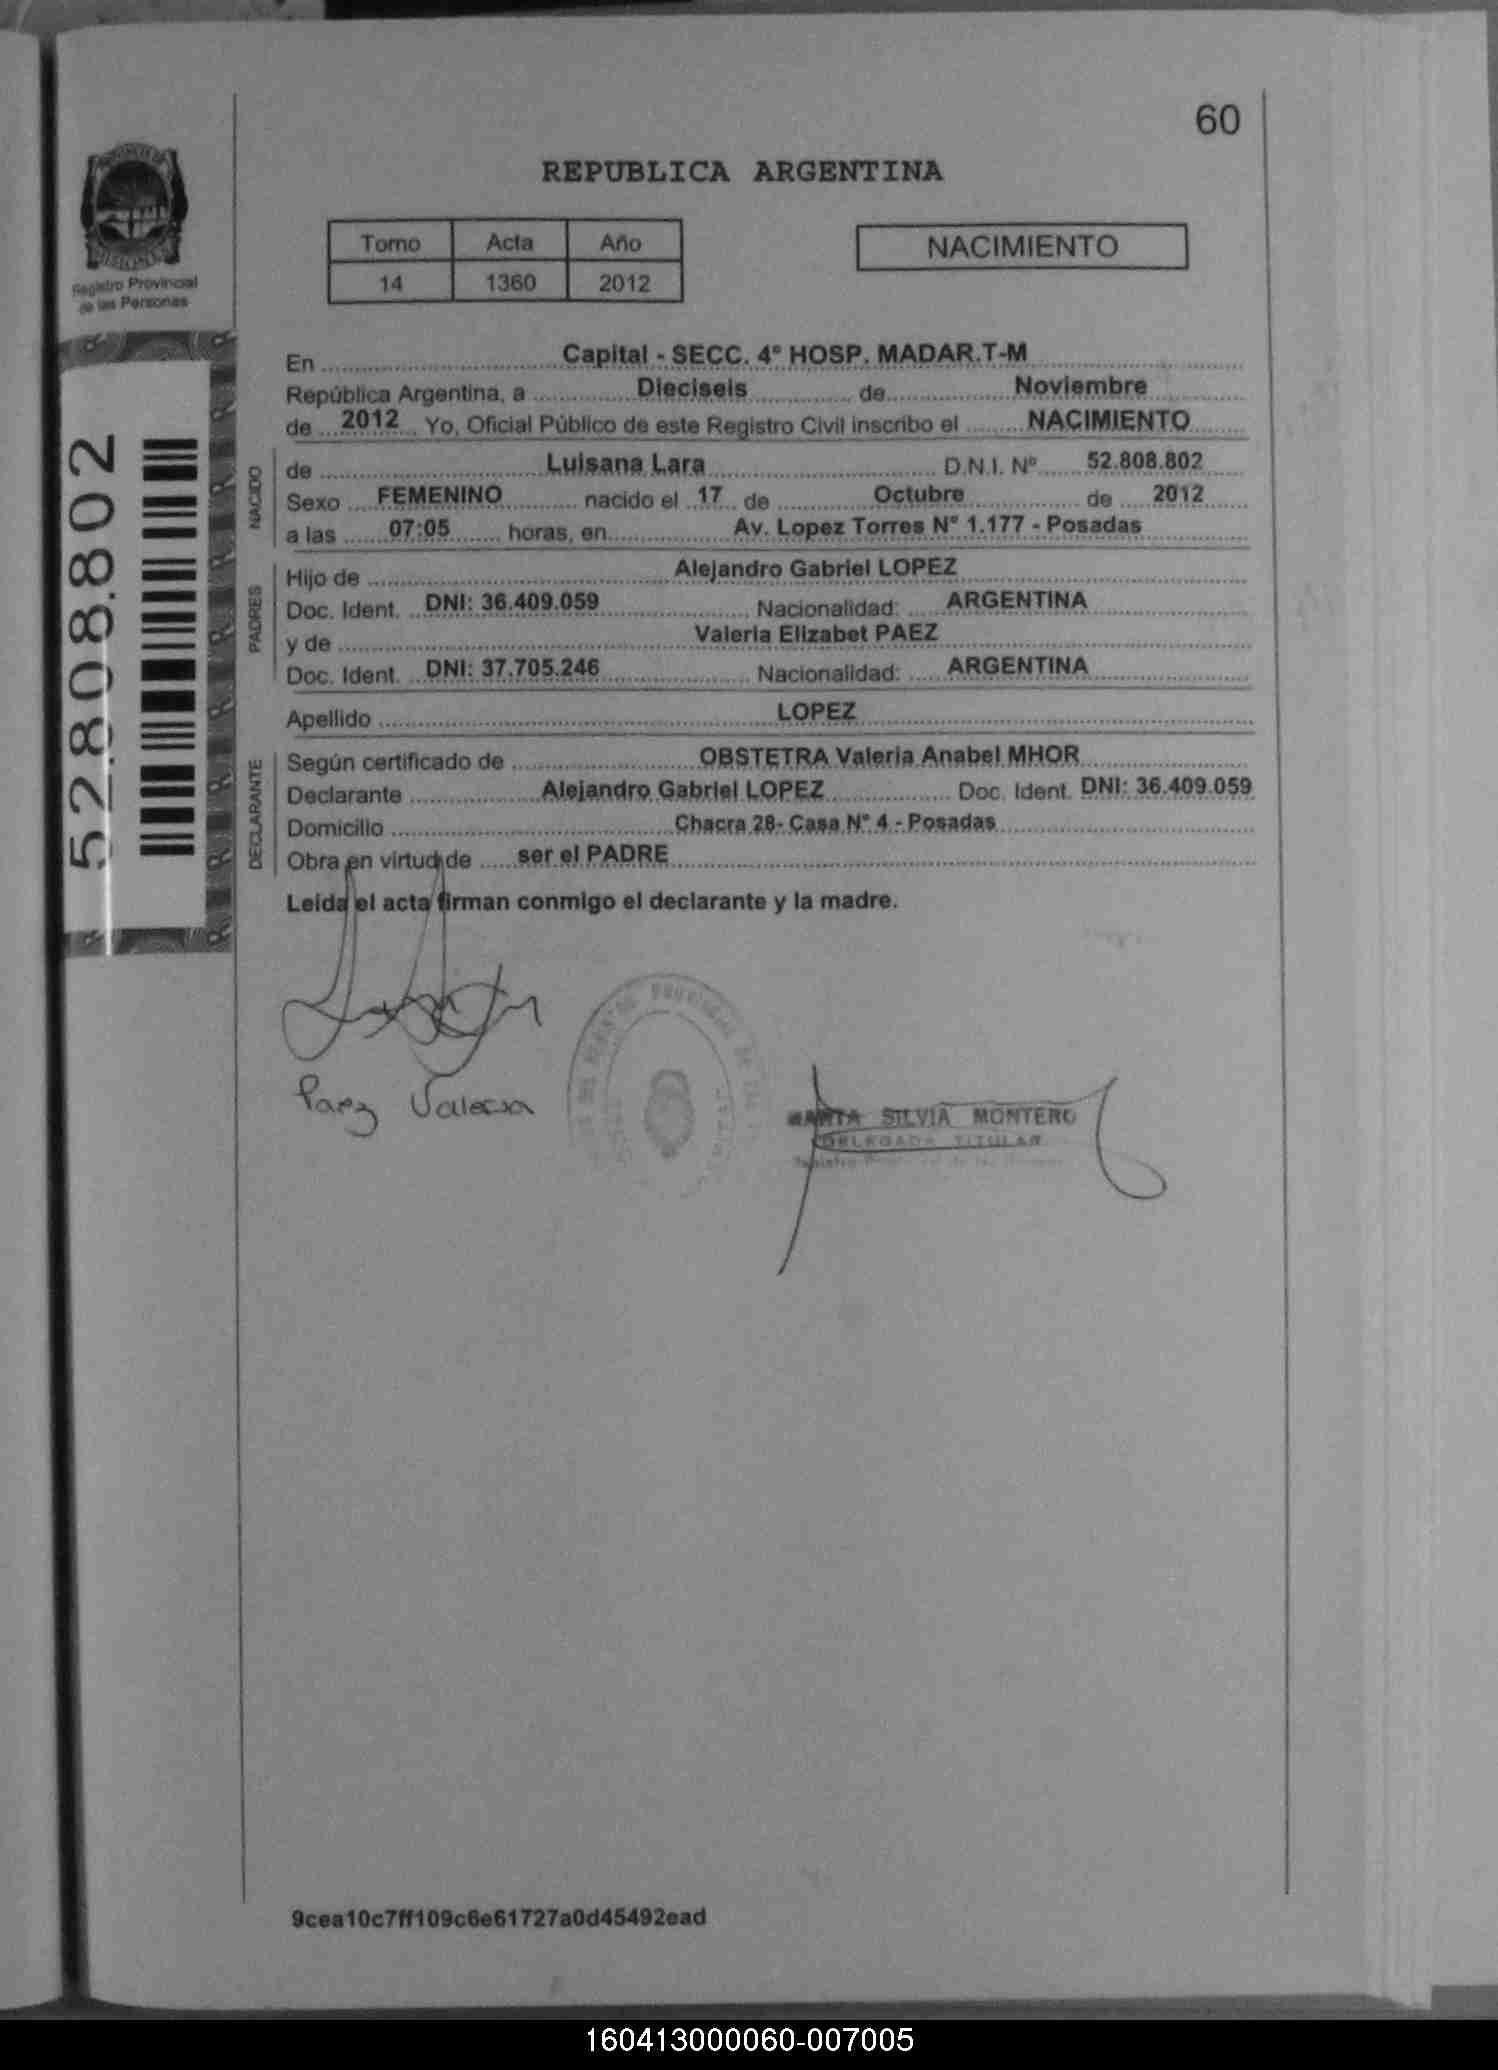 60
REPUBLICA ARGENTINA
Registro Provincial
de las Personas
Tomo Acta Año
14 1360 2012
NACIMIENTO
52.808.802
En Capital - SECC. 4° HOSP. MADAR.T-M
República Argentina, a Dieciseis de Noviembre
de 2012 Yo, Oficial Público de este Registro Civil inscribo el NACIMIENTO
NACIDO
de Luisana Lara D.N.I. Nº 52.808.802
Sexo FEMENINO nacido el 17 de Octubre de 2012
a las 07:05 horas, en Av. Lopez Torres N° 1.177 - Posadas
PADRES
Hijo de Alejandro Gabriel LOPEZ
Doc. Ident. DNI: 36.409.059 Nacionalidad: ARGENTINA
y de Valeria Elizabet PAEZ
Doc. Ident. DNI: 37.705.246 Nacionalidad: ARGENTINA
Apellido LOPEZ
DECLARANTE
Según certificado de OBSTETRA Valeria Anabel MHOR
Declarante Alejandro Gabriel LOPEZ Doc. Ident. DNI: 36.409.059
Domicilio Chacra 28- Casa N° 4 - Posadas
Obra en virtud de ser el PADRE
Leida el acta firman conmigo el declarante y la madre.
Paez Valeria
MARTA SILVIA MONTERO
DELEGADA TITULAR
9cea10c7ff109c6e61727a0d45492ead
160413000060-007005